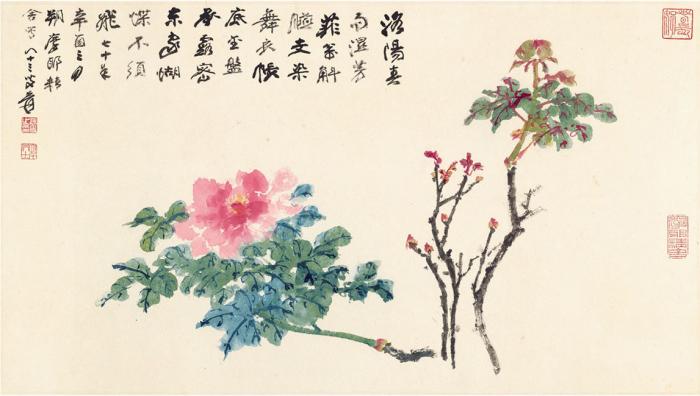 洛陽春
雨溼芳
菲萬斛
臙支染
舞衣帳
底金盤
承露密
東家蝴
蝶不須
飛七十年
辛酉三月
朔摩耶精
舍寫八十三叟爰